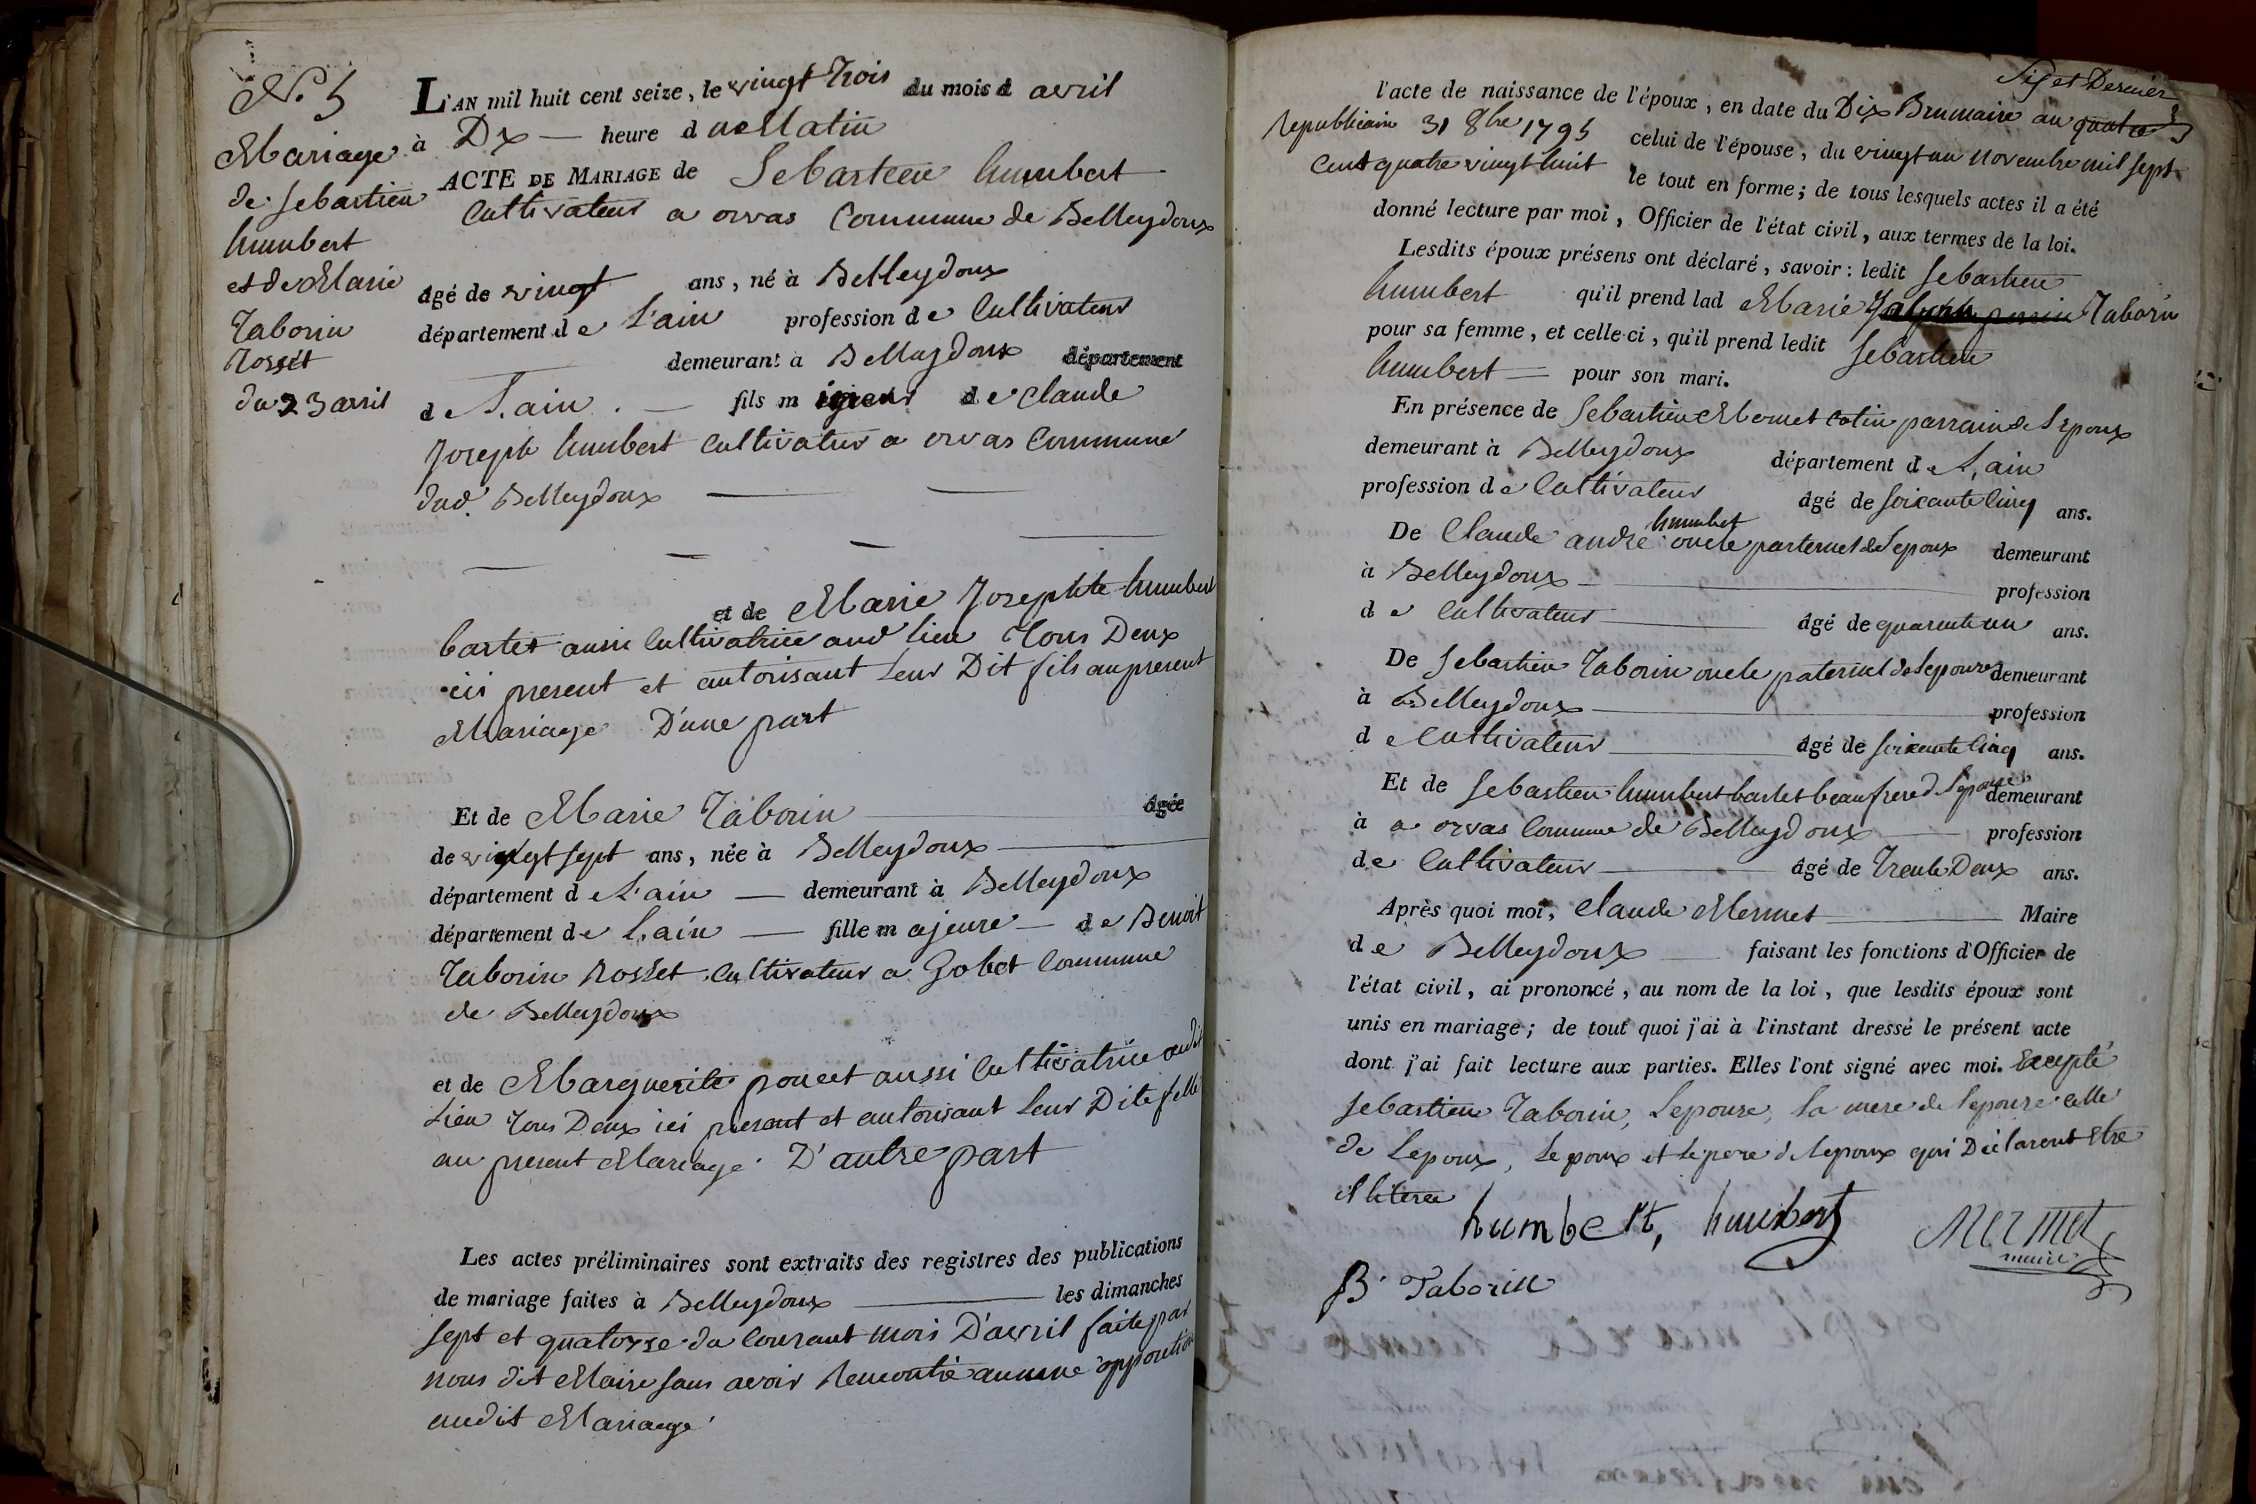 N.° 5
Mariage
de Sebastien
humbert
et de Marie
Taborin
Rosset
du 23 avril
L'AN mil huit cent seize, le vingt Trois du mois d avril
à Dix — heure d u Matin
ACTE DE MARIAGE de Sebastien humbert
Cultivateur a orvas Commune de Belleydoux
âgé de vingt ans, né à Belleydoux
département de L'ain profession de Cultivateur
demeurant à Belleydoux département
de L'ain . — fils mineur de Claude
Joseph humbert Cultivateur a orvas Commune
dud. Belleydoux
et de Marie Josephte humbert
bartet aussi Cultivatrice aud lieu Tous Deux
ici present et autorisant leur Dit fils au present
Mariage D'une part
Et de Marie Taborin âgée
de vingt sept ans, née à Belleydoux
département de L'ain — demeurant à Belleydoux
département de L'ain — fille majeure — de Benoit
Taborin Rosset Cultivateur a Gobet Commune
de Belleydoux
et de Marguerite poncet aussi Cultivatrice audit
Lieu Tous Deux ici present et autorisant leur Dite fille
au present Mariage. D'autre part
Les actes préliminaires sont extraits des registres des publications
de mariage faites à Belleydoux les dimanches
sept et quatorse du Courant mois D'avril faite par
nous dit Maire sans avoir Rencontré aucune opposition
audit Mariage
Six et Dernier
l'acte de naissance de l'époux, en date du Dix Brumaire an quatre
Republicain 31 8bre 1795 celui de l'épouse, du vingt un Novembre mil sept
Cent quatre vingt huit le tout en forme; de tous lesquels actes il a été
donné lecture par moi, Officier de l'état civil, aux termes de la loi.
Lesdits époux présens ont déclaré, savoir: ledit Sebastien
humbert qu'il prend lad Marie Taborin
pour sa femme, et celle-ci, qu'il prend ledit Sebastien
humbert = pour son mari.
En présence de Sebastien Mermet Cotin parrain de L'epoux
demeurant à Belleydoux département de L'ain
profession de Cultivateur âgé de soixante Cinq ans.
De Claude andré humbert oncle parternel de Lepoux demeurant
à Belleydoux profession
de Cultivateur âgé de quarente un ans.
De Sebastien Taborin oncle paternel de Lepouse demeurant
à Belleydoux profession
de Cultivateur âgé de soixante Cinq ans.
Et de Sebastien humbert bartet beaufrere de Lepouse demeurant
à a orvas Commune de Belleydoux profession
de Cultivateur âgé de Trente Deux ans.
Après quoi moi, Claude Mermet Maire
de Belleydoux faisant les fonctions d'Officier de
l'état civil, ai prononcé, au nom de la loi, que lesdits époux sont
unis en mariage; de tout quoi j'ai à l'instant dressé le présent acte
dont j'ai fait lecture aux parties. Elles l'ont signé avec moi. Excepté
Sebastien Taborin, Lepouse, la mere de lepouse celle
de Lepoux, Lepoux et le pere de lepoux qui Déclarent Etre
illiteré
humbert, humbert Mermet
maire
B. Taborin